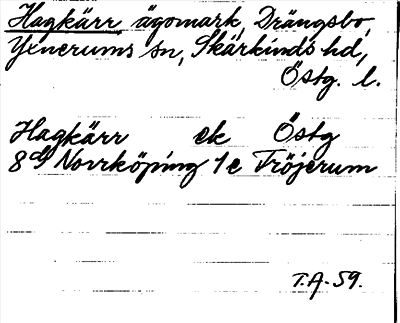 Hagkärr ägomark, Drängsbo,
Yxnerums sn, Skärkinds hd,
Östg. l.
Hagkärr ek Östg
8G Norrköping 1e Fröjerum
T.A-59.